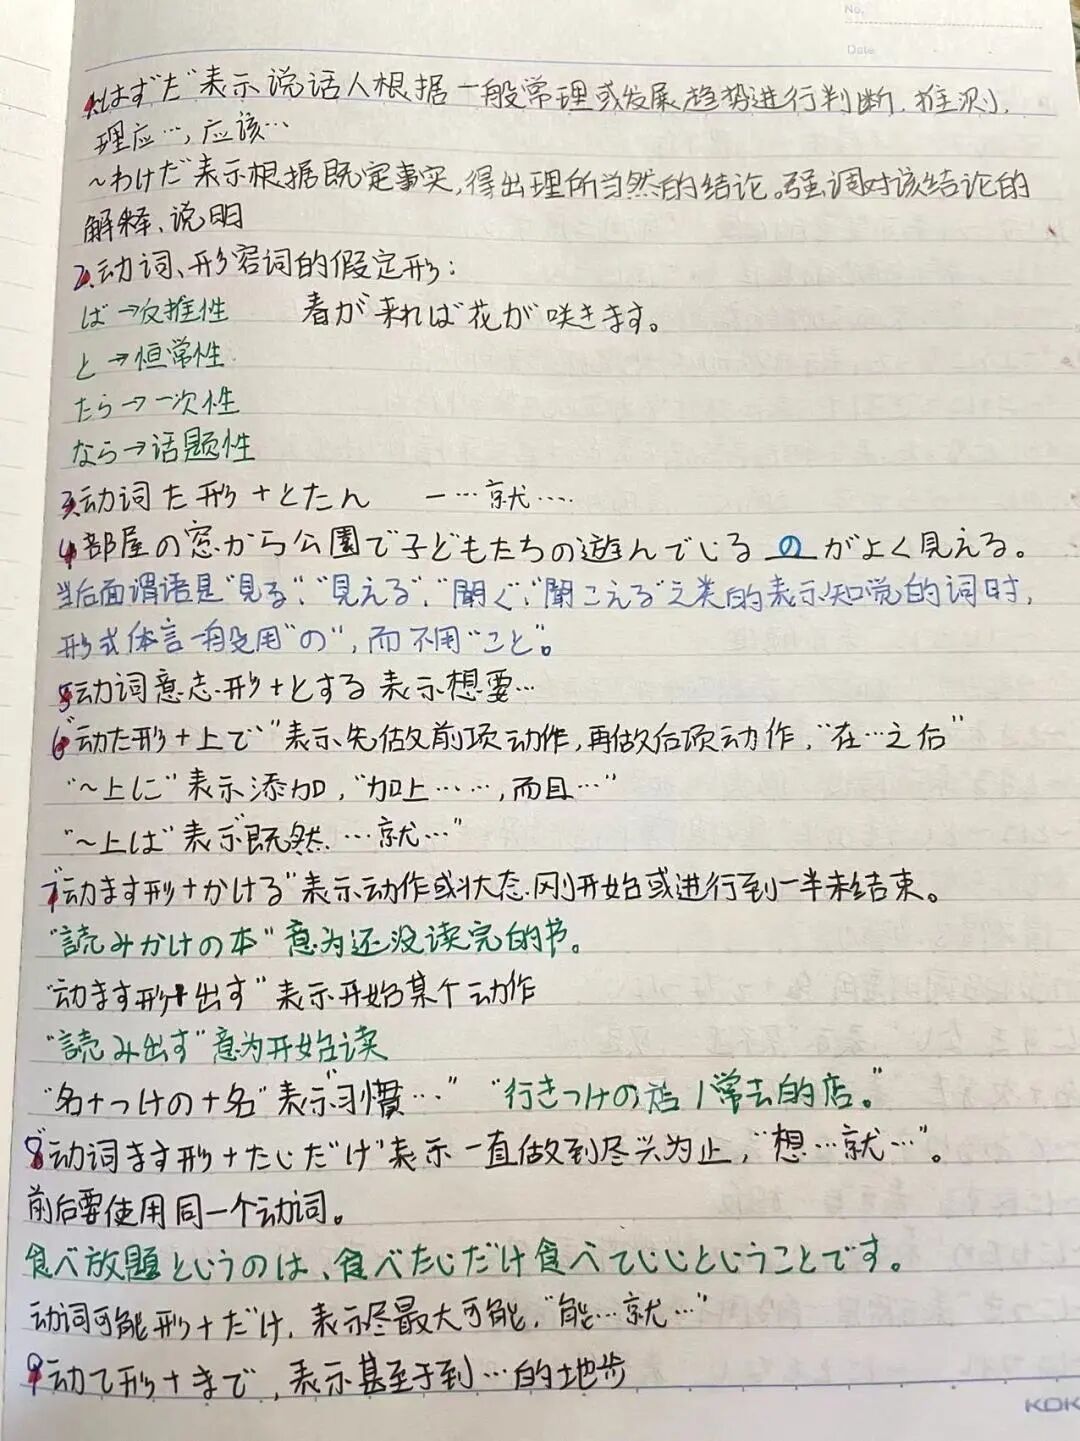 No.
Date
1."はずだ"表示说话人根据一般常理或发展趋势进行判断、推测,
理应…,应该…
~わけだ"表示根据既定事实,得出理所当然的结论。强调对该结论的
解释、说明
2.动词、形容词的假定形:
ば→反推性 春が来れば花が咲きます。
と→恒常性
たら→一次性
なら→话题性
3.动词た形+とたん 一…就…
4.部屋の窓から公園で子どもたちの遊んでいるのがよく見える。
当后面谓语是"見る"、"見える"、"聞く"、"聞こえる"之类的表示知觉的词时,
形式体言一般用"の",而不用"こと"。
5.动词意志形+とする 表示想要…
6."动た形+上で"表示先做前项动作,再做后项动作,"在…之后"
"~上に"表示添加,"加上……,而且…"
"~上は"表示"既然…就…"
7."动ます形+かける"表示动作或状态刚开始或进行到一半未结束。
"読みかけの本"意为还没读完的书。
"动ます形+出す"表示开始某个动作
"読み出す"意为开始读
"名+つけの+名"表示"习惯…" "行きつけの店/常去的店。"
8."动词ます形+たいだけ"表示一直做到尽兴为止,"想…就…"。
前后要使用同一个动词。
食べ放題というのは、食べたいだけ食べていいということです。
动词可能形+だけ,表示尽最大可能,"能…就…"
9.动て形+まで,表示甚至于到…的地步